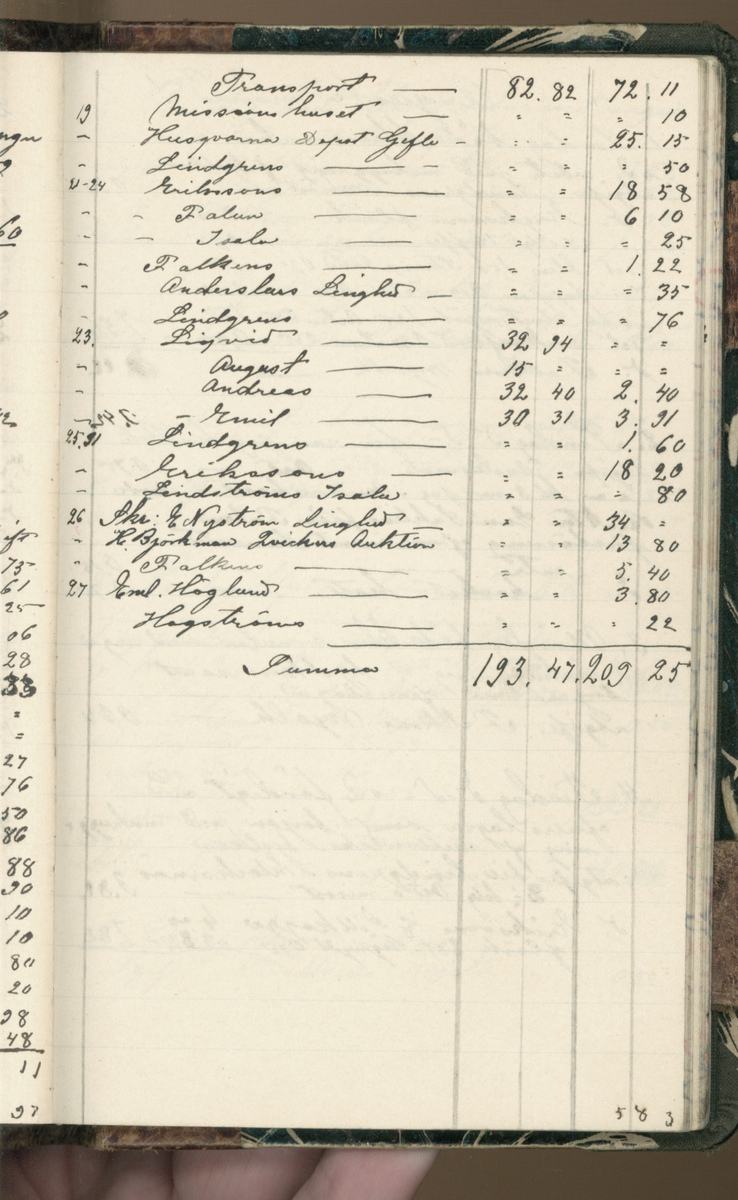 Transport — 82. 82 72. 11
19 Missions huset — " " " 10
" Husqvarna Depot Gefle - " " 25. 15
" Lindgrens — " " " 50
21-24 Erikssons — " " 18 58
" " Falun — " " 6 10
" " Isala — " " " 25
" Falkens — " " 1. 22
" Anderslars Linghed — " " " 35
" Lindgrens — " " " 76
23. Liqvid — 32 94 " "
" August — 15 " " "
" Andreas — 32 40 2. 40
" - Emil — 30 31 3. 91
25,31 Lindgrens — " " 1. 60
" Erikssons — " " 18 20
" Lindströms Isala " " " 80
26 Skr: E Nyström Linghed — " " 34 "
" H. Björkman Zvickers Auktion " " 13 80
" Falkens — " " 5. 40
27 Eml. Höglund — " " 3. 80
Hagströms — " " " 22
Summa 193. 47. 209 25
5 8 3
60
75
61
25
06
28
33
"
"
27
76
50
86
88
90
10
10
80
20
98
48
11
97